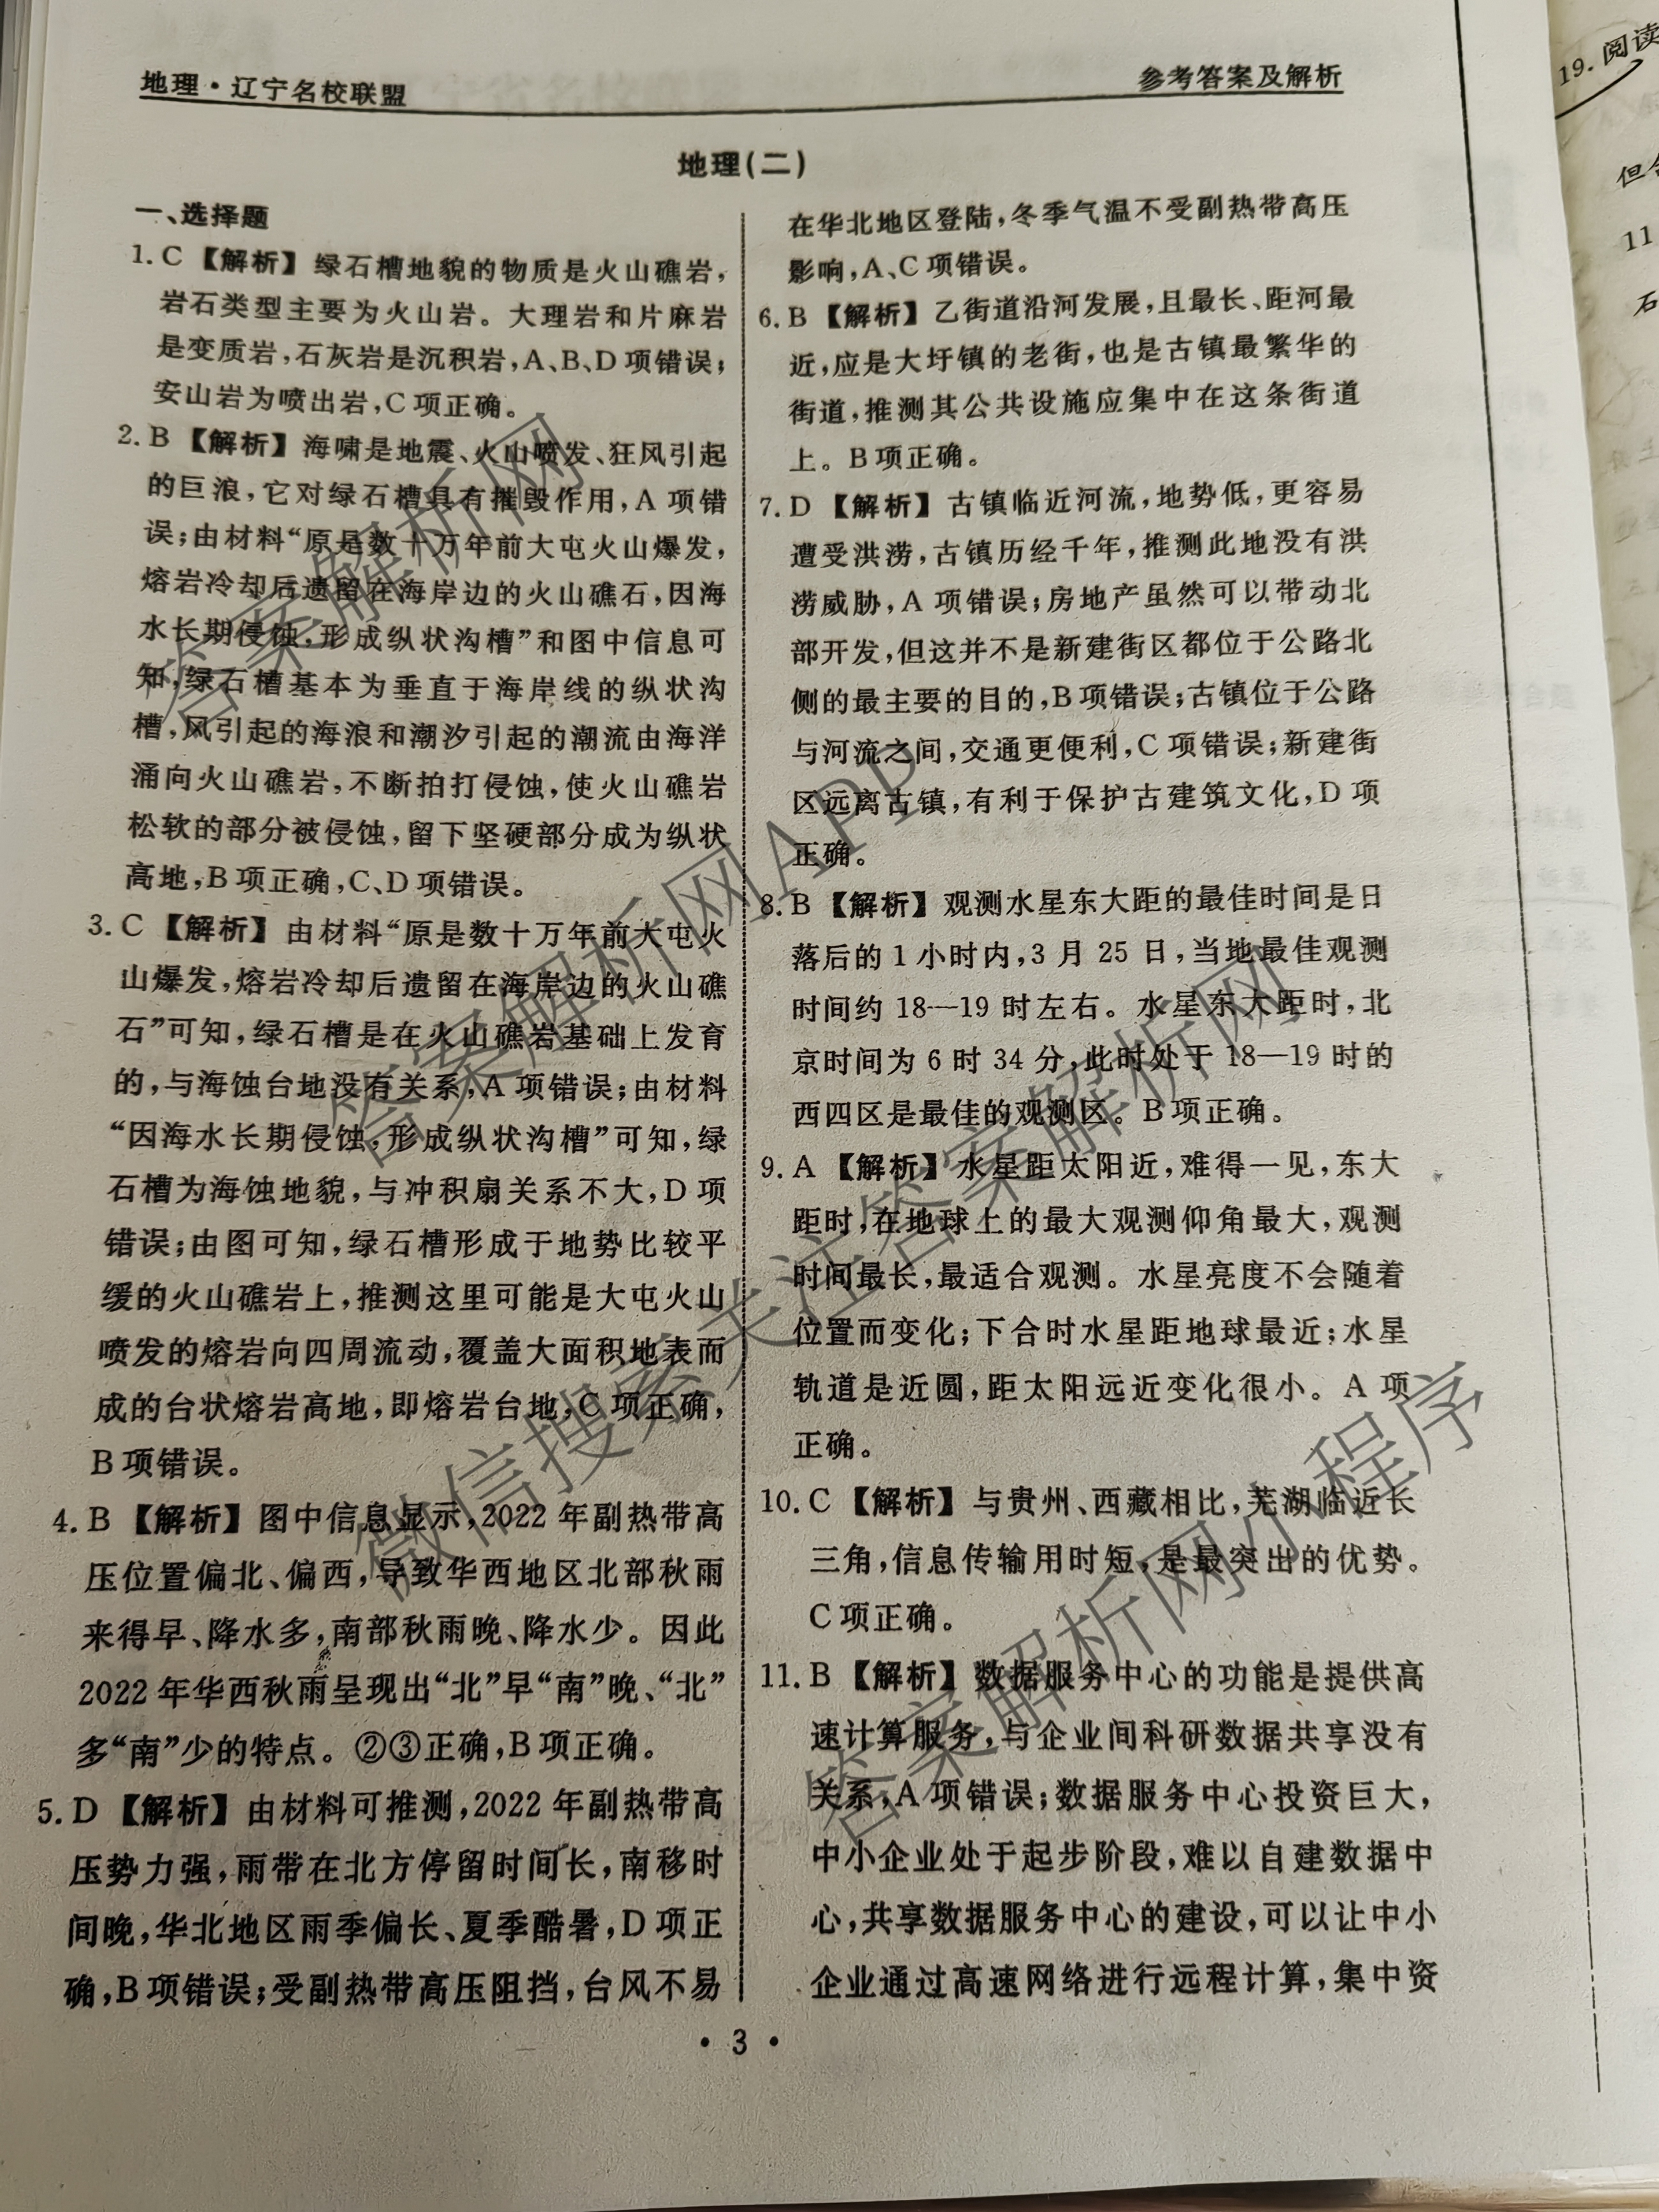 地理·辽宁名校联盟
参考答案及解析
地理(二)
一、选择题
1. C 【解析】绿石槽地貌的物质是火山礁岩,
岩石类型主要为火山岩。大理岩和片麻岩
是变质岩,石灰岩是沉积岩,A、B、D项错误;
安山岩为喷出岩,C项正确。
2. B 【解析】海啸是地震、火山喷发、狂风引起
的巨浪,它对绿石槽具有摧毁作用,A项错
误;由材料“原是数十万年前大屯火山爆发,
熔岩冷却后遗留在海岸边的火山礁石,因海
水长期侵蚀,形成纵状沟槽”和图中信息可
知,绿石槽基本为垂直于海岸线的纵状沟
槽,风引起的海浪和潮汐引起的潮流由海洋
涌向火山礁岩,不断拍打侵蚀,使火山礁岩
松软的部分被侵蚀,留下坚硬部分成为纵状
高地,B项正确,C、D项错误。
3. C 【解析】由材料“原是数十万年前大屯火
山爆发,熔岩冷却后遗留在海岸边的火山礁
石”可知,绿石槽是在火山礁岩基础上发育
的,与海蚀台地没有关系,A项错误;由材料
“因海水长期侵蚀,形成纵状沟槽”可知,绿
石槽为海蚀地貌,与冲积扇关系不大,D项
错误;由图可知,绿石槽形成于地势比较平
缓的火山礁岩上,推测这里可能是大屯火山
喷发的熔岩向四周流动,覆盖大面积地表而
成的台状熔岩高地,即熔岩台地,C项正确,
B项错误。
4. B 【解析】图中信息显示,2022年副热带高
压位置偏北、偏西,导致华西地区北部秋雨
来得早、降水多,南部秋雨晚、降水少。因此
2022年华西秋雨呈现出“北”早“南”晚、“北”
多“南”少的特点。②③正确,B项正确。
5. D 【解析】由材料可推测,2022年副热带高
压势力强,雨带在北方停留时间长,南移时
间晚,华北地区雨季偏长、夏季酷暑,D项正
确,B项错误;受副热带高压阻挡,台风不易
在华北地区登陆,冬季气温不受副热带高压
影响,A、C项错误。
6. B 【解析】乙街道沿河发展,且最长、距河最
近,应是大圩镇的老街,也是古镇最繁华的
街道,推测其公共设施应集中在这条街道
上。B项正确。
7. D 【解析】古镇临近河流,地势低,更容易
遭受洪涝,古镇历经千年,推测此地没有洪
涝威胁,A项错误;房地产虽然可以带动北
部开发,但这并不是新建街区都位于公路北
侧的最主要的目的,B项错误;古镇位于公路
与河流之间,交通更便利,C项错误;新建街
区远离古镇,有利于保护古建筑文化,D项
正确。
8. B 【解析】观测水星东大距的最佳时间是日
落后的1小时内,3月25日,当地最佳观测
时间约18—19时左右。水星东大距时,北
京时间为6时34分,此时处于18—19时的
西四区是最佳的观测区。B项正确。
9. A 【解析】水星距太阳近,难得一见,东大
距时,在地球上的最大观测仰角最大,观测
时间最长,最适合观测。水星亮度不会随着
位置而变化;下合时水星距地球最近;水星
轨道是近圆,距太阳远近变化很小。A项
正确。
10. C 【解析】与贵州、西藏相比,芜湖临近长
三角,信息传输用时短,是最突出的优势。
C项正确。
11. B 【解析】数据服务中心的功能是提供高
速计算服务,与企业间科研数据共享没有
关系,A项错误;数据服务中心投资巨大,
中小企业处于起步阶段,难以自建数据中
心,共享数据服务中心的建设,可以让中小
企业通过高速网络进行远程计算,集中资
·3·
19. 阅读
11
石
答案解析网
答案解析网APP
微信搜索关注答案解析网
答案解析网小程序